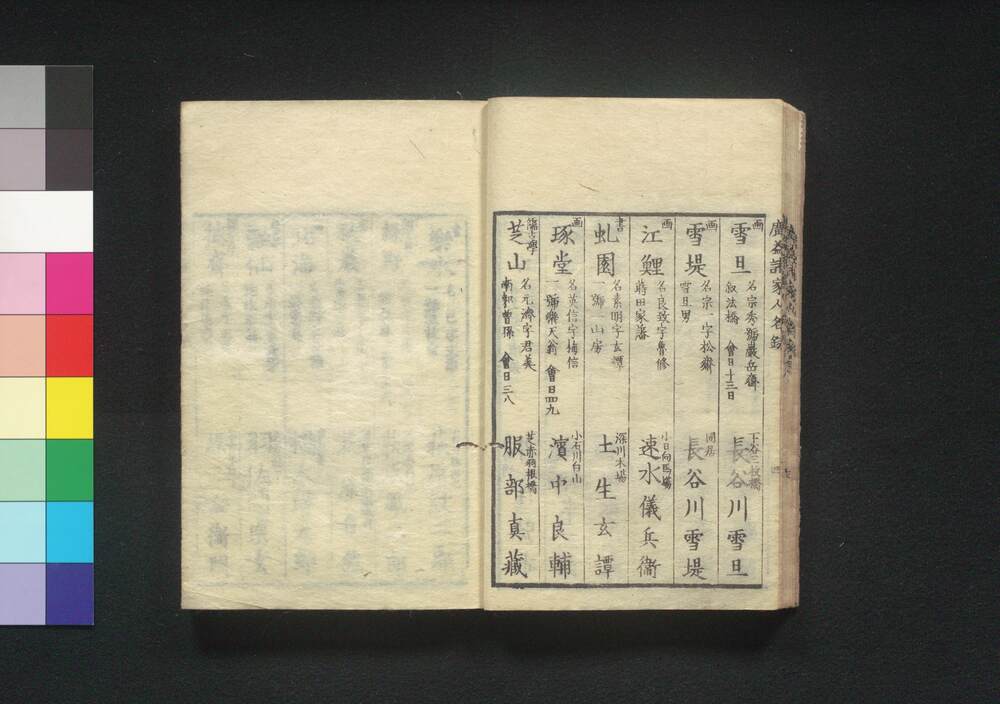 廣益諸家人名録
画
雪旦
名宗秀號巖岳齋
叙法橋 會日十三日
下谷三枚橋
長谷川雪旦
画
雪堤
名宗一字松齋
雪旦男
同居
長谷川雪堤
画
江鯉
名良致字魯修
蒔田家藩
小日向馬場
速水儀兵衞
書
虬園
名素明字玄潭
一號一山房
深川木場
土生玄譚
画
琢堂
名英信字梅信
一號樂天翁 會日四九
小石川白山
濱中良輔
儒古學
芝山
名元濟字君美
南郭曾孫 會日三八
芝赤羽根橋
服部真藏